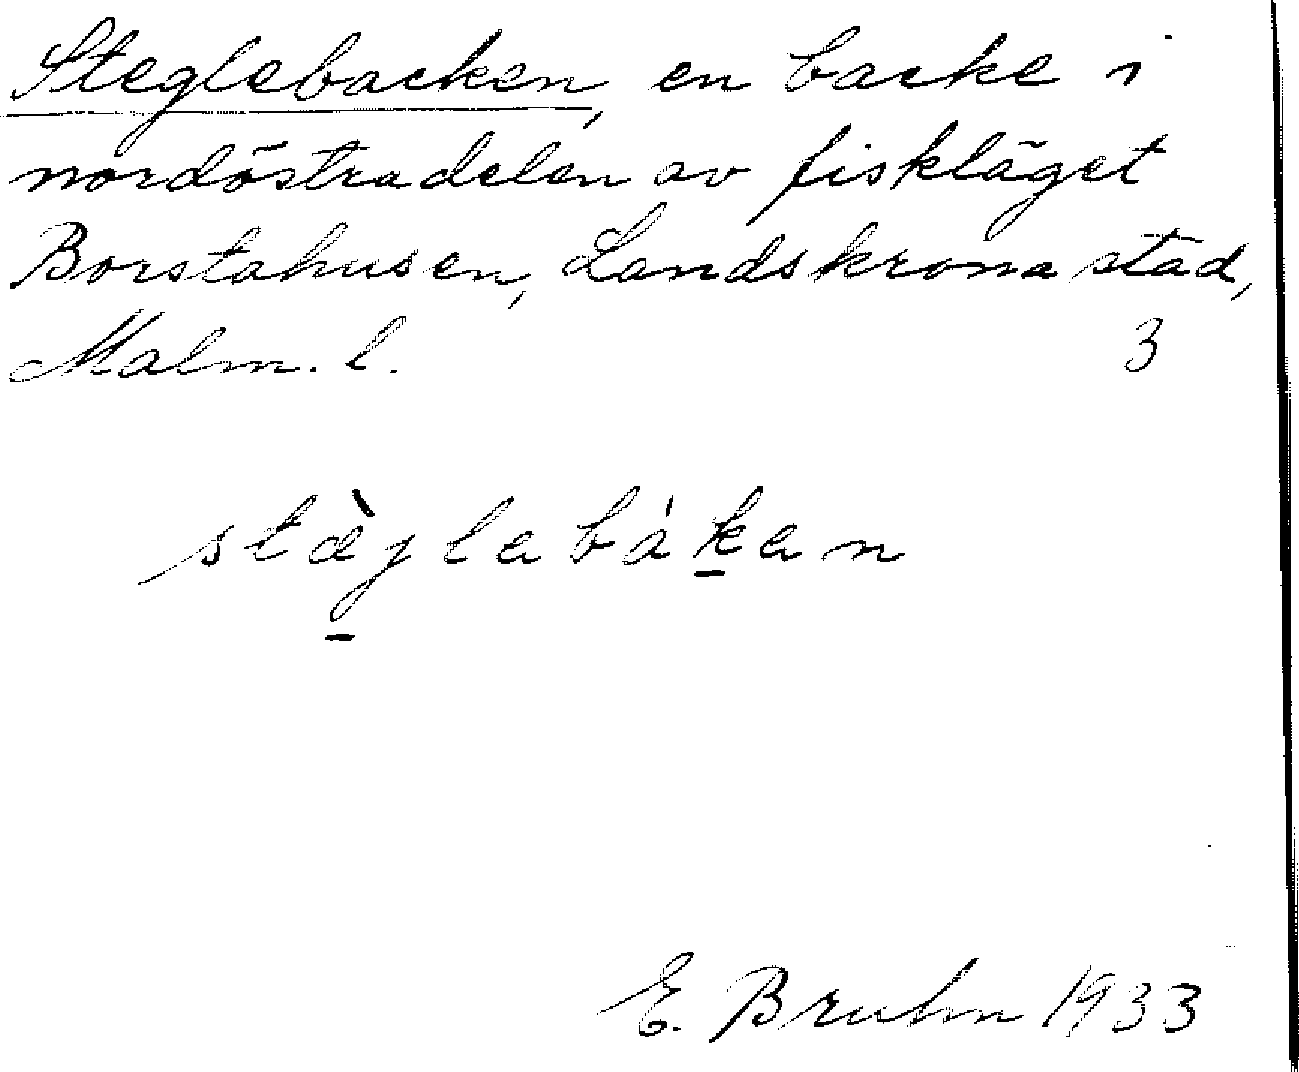 Steglebacken, en backe i
nordöstra delen av fiskläget
Borstahusen, Landskrona stad,
Malm. l. 3
stæ̀jlabákan
E. Bruhn 1933